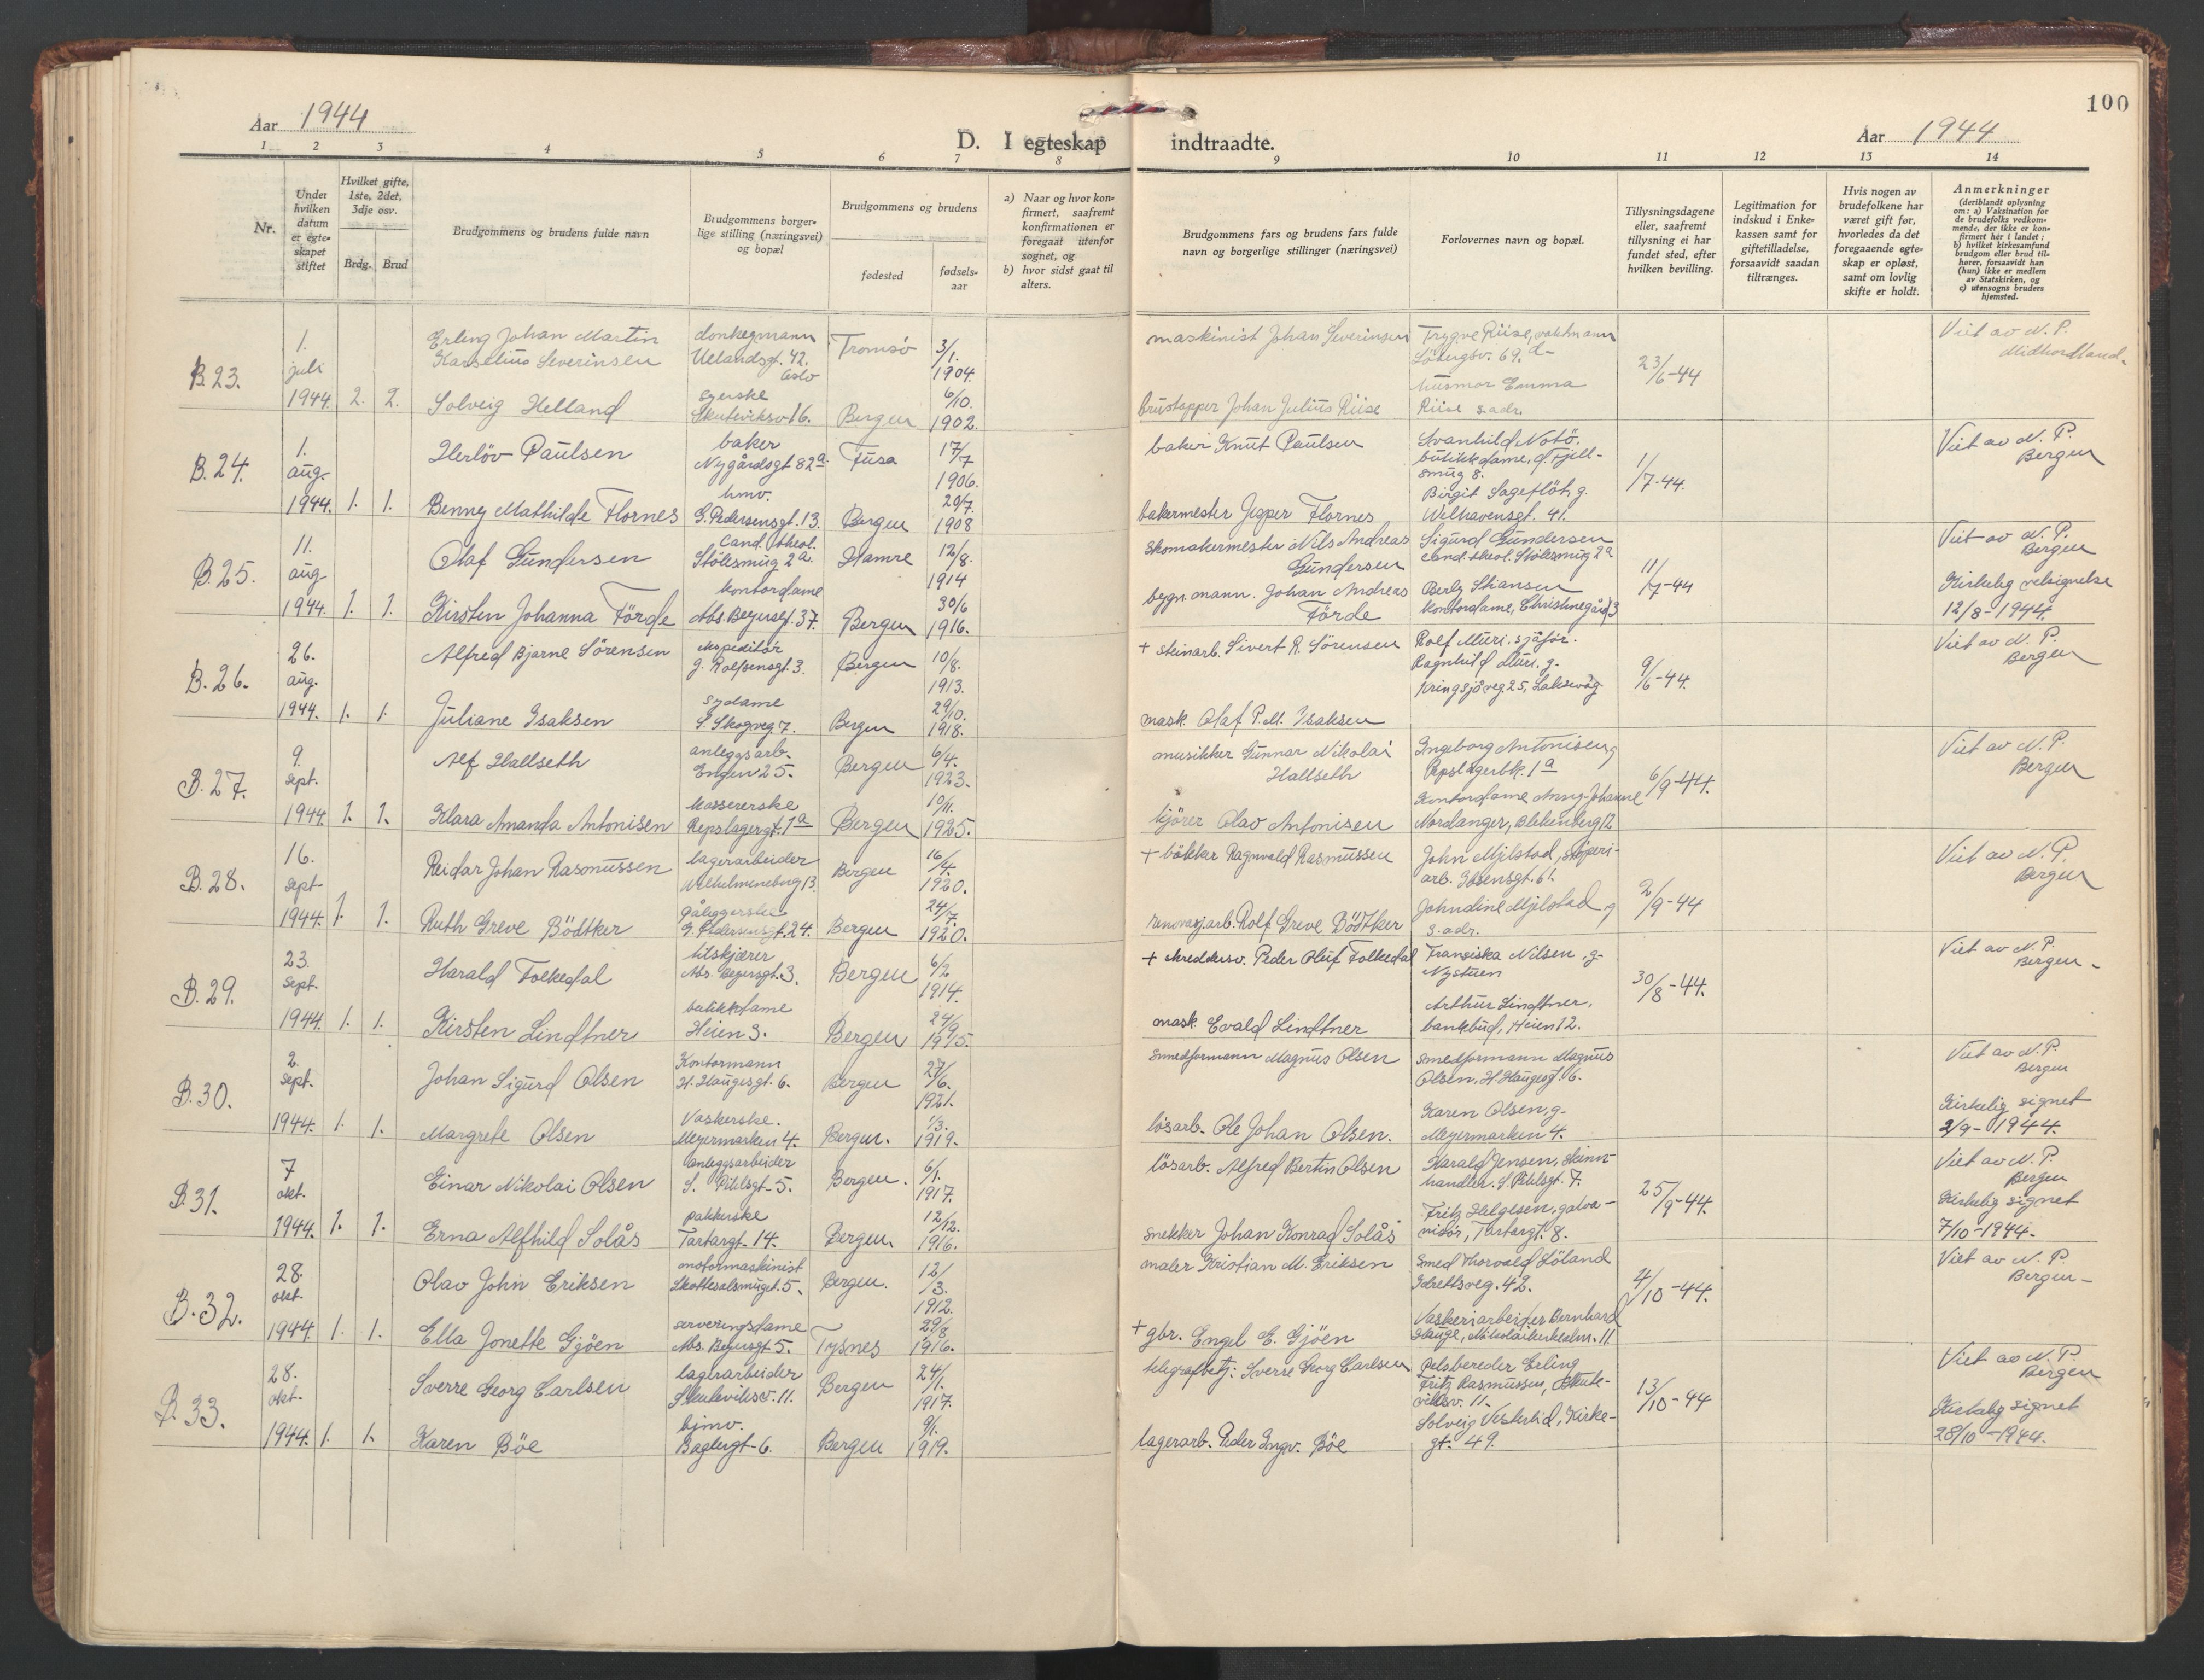 100
Aar 1944
D. I egteskap indtraadte.
Aar 1944
1 2 3 4 5 6 7 8 9 10 11 12 13 14
Nr.
Under hvilken datum er egteskapet stiftet
Hvilket gifte, 1ste, 2det, 3dje osv.
Brdg. Brud
Brudgommens og brudens fulde navn
Brudgommens borgerlige stilling (næringsvei) og bopæl
Brudgommens og brudens
fødested
fødselsaar
a) Naar og hvor konfirmert, saafremt konfirmationen er foregaat utenfor sognet, og
b) hvor sidst gaat til alters.
Brudgommens fars og brudens fars fulde navn og borgerlige stillinger (næringsvei)
Forlovernes navn og bopæl.
Tillysningsdagene eller, saafremt tillysning ei har fundet sted, efter hvilken bevilling.
Legitimation for indskud i Enkekassen samt for giftetilladelse, forsaavidt saadan tiltrænges.
Hvis nogen av brudefolkene har været gift før, hvorledes da det foregaaende egteskap er opløst, samt om lovlig skifte er holdt.
Anmerkninger (deriblandt oplysning om: a) Vaksination for de brudefolks vedkommende, der ikke er konfirmert her i landet; b) hvilket kirkesamfund brudgom eller brud tilhører, forsaavidt han (hun) ikke er medlem av Statskirken, og c) utensogns bruders hjemsted.
B.23. 1. juli 1944. 2. 2.
Erling Johan Martin Karselius Severinsen
donkeymann Uelandsgt. 42. Oslo
Tromsø 3/1. 1904.
maskinist Johan Severinsen
Trygve Riise, vaktmann
69. d-
23/6-44
Viet av N. P. Midhordland.
Solveig Helland
syerske Skuteviksv 16.
Bergen 6/10. 1902.
Johan Julius Riise
husmor Emma Riise s. adr.
B.24. 1. aug. 1944. 1. 1.
Herlöv Paulsen
baker Nygårdsgt 82a.
Fusa 17/7 1906.
baker Knut Paulsen
Svanhild Notö. butikkdame, d. Fjellsmug 8.
1/7-44.
Viet av N. P. Bergen
Benny Mathilde Flornes
hmv. G. Pedersensgt. 13.
Bergen 20/7. 1908
bakermester Jesper Flornes
Birgit Sageflöt, g. Welhavensgt. 41.
B.25. 11. aug 1944. 1. 1.
Olaf Gundersen
cand. theol. Stölesmug 2a.
Hamre 12/8. 1914
skomakermester Nils Andreas Gundersen
Sigurd Gundersen cand. theol. Stölesmug 2a.
11/7-44
Viet av N. P. Bergen
Kirkelig velsignelse 12/8-1944.
Kirsten Johanna Förde
kontordame Abs. Beyersgt. 37.
Bergen 30/6 1916.
bygn. mann. Johan Andreas Förde
Berly Stiansen kontordame, Christinegård 3
B.26. 26. aug. 1944. 1. 1.
Alfred Bjarne Sörensen
ekspeditör J. Rolfsensgt. 3.
Bergen 10/8. 1913.
+ steinarb. Sivert R. Sörensen
Rolf Muri. sjåför.
Ragnhild Muri. g. Kringsjåveg 25, Laksevåg.
9/6-44.
Viet av N. P. Bergen
Juliane Isaksen
sydame S. Skogveg 7.
Bergen 29/10. 1918.
mask. Olaf P. M. Isaksen
B.27. 9. sept. 1944. 1. 1.
Alf Hallseth
anleggsarb. Engen 25.
Bergen 6/4. 1923.
musikker Gunnar Nikolai Hallseth
Ingeborg Antonisen, g Repslagerbk. 1a
6/9-44.
Viet av N. P. Bergen
Klara Amanda Antonisen
kassererske Repslagergt. 1a
Bergen 10/11. 1925.
kjörer Olav Antonisen
Kontordame Anny-Johanne Nordanger, Blekenberg 12
B.28. 16. sept 1944. 1. 1.
Reidar Johan Rasmussen
lagerarbeider Wilhelmineborg 13.
Bergen 16/4. 1920.
+ bökker Ragnvald Rasmussen
John Mjelstad, arb. Ibsensgt. 61.
2/9-44
Viet av N. P. Bergen
Ruth Greve Bödtker
påleggerske G. Pedersensgt. 24.
Bergen 24/7. 1920.
renovasj.arb. Rolf Greve Bödtker
Johndine Mjelstad g s. adr.
B.29. 23. sept. 1944. 1. 1.
Harald Folkedal
tilskjærer Abs. Beyersgt. 3.
Bergen 6/2 1914.
+ skreddersv. Peder Oluf Folkedal
Fransiska Nilsen, g. Nystuen
30/8-44.
Viet av N. P. Bergen-
Kirsten Lindtner
butikkdame Heien 3.
Bergen 24/9 1915.
mask. Evald Lindtner
Arthur Lindtner, bankbud, Heien 12.
B.30. 2. sept. 1944. 1. 1.
Johan Sigurd Olsen
Kontormann H. Haugesgt. 6.
Bergen 27/6. 1921.
smedformann Magnus Olsen
smedformann Magnus Olsen, H. Haugesgt. 6.
Viet av N. P. Bergen
Kirkelig signet 2/9-1944.
Margrete Olsen
Vaskerske. Meyermarken 4.
Bergen. 1/3. 1919.
lösarb. Ole Johan Olsen.
Karen Olsen, g. Meyermarken 4.
B.31. 7 okt. 1944. 1. 1.
Einar Nikolai Olsen
anleggsarbeider S. Pihlsgt-5.
Bergen. 6/1. 1917.
lösarb. Alfred Bertin Olsen
Harald Jensen, skinnhandler. S. Pihlsgt. 7.
25/9-44.
Viet av N. P. Bergen
Kirkelig signet 7/10-1944.
Erna Alfhild Solås
pakkerske Tartargt-14.
Bergen. 12/12. 1916.
snekker Johan Konrad Solås
Fritz Helgesen, galvanisör, Tartargt. 8.
B.32. 28. okt. 1944. 1. 1.
Olav John Eriksen
motormaskinist Skottesalsmuget. 5.
Bergen. 12/3. 1912.
maler Kristian M. Eriksen
Smed Thorvald Löland Idrettsveg. 42.
4/10-44.
Viet av N. P. Bergen-
Ella Jonette Gjöen
serveringsdame Abs. Beyersgt-5.
Tysnes 29/8 1916.
+ gbr. Engel E. Gjöen
Vaskeriarbeider Bernhard Hauge, Nikolaikirkealm. 11
B.33. 28. okt. 1944. 1. 1.
Sverre Georg Carlsen
lagerarbeider Skuteviksv. 11.
Bergen 24/1. 1917.
telegrafbetj: Sverre Georg Carlsen
Pelsbereder Erling Fritz Rasmussen, Skuteviksv. 11.
13/10-44
Viet av N. P. Bergen
Kirkelig signet 28/10-1944.
Karen Böe
hjmv. Baglergt-6.
Bergen 9/1. 1919.
lagerarb. Peder Ingv. Böe
Solveig Vesterlid, Kirkegt. 49.